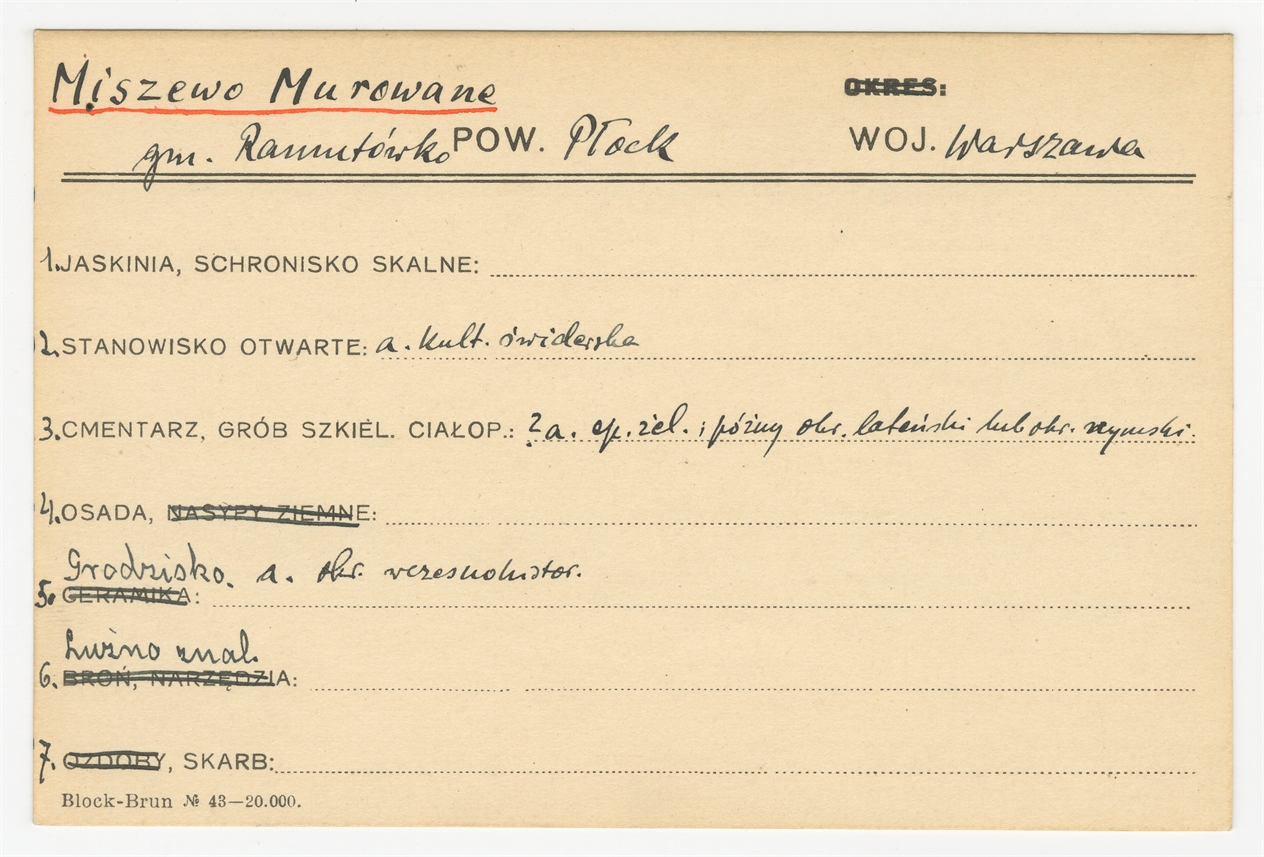 Miszewo Murowane OKRES:
gm. Ramutówko POW. Płock WOJ. Warszawa
1. JASKINIA, SCHRONISKO SKALNE:
2. STANOWISKO OTWARTE: a. kult. świderska
3. CMENTARZ, GRÓB SZKIEL. CIAŁOP.: ? a. ep. żel.; późny okr. lateński lub okr. rzymski.
4. OSADA, NASYPY ZIEMNE:
Grodzisko. a. okr. wczesnohistor.
5. CERAMIKA:
Luźno znal.
6. BROŃ, NARZĘDZIA:
7. OZDOBY, SKARB:
Block-Brun № 43—20.000.